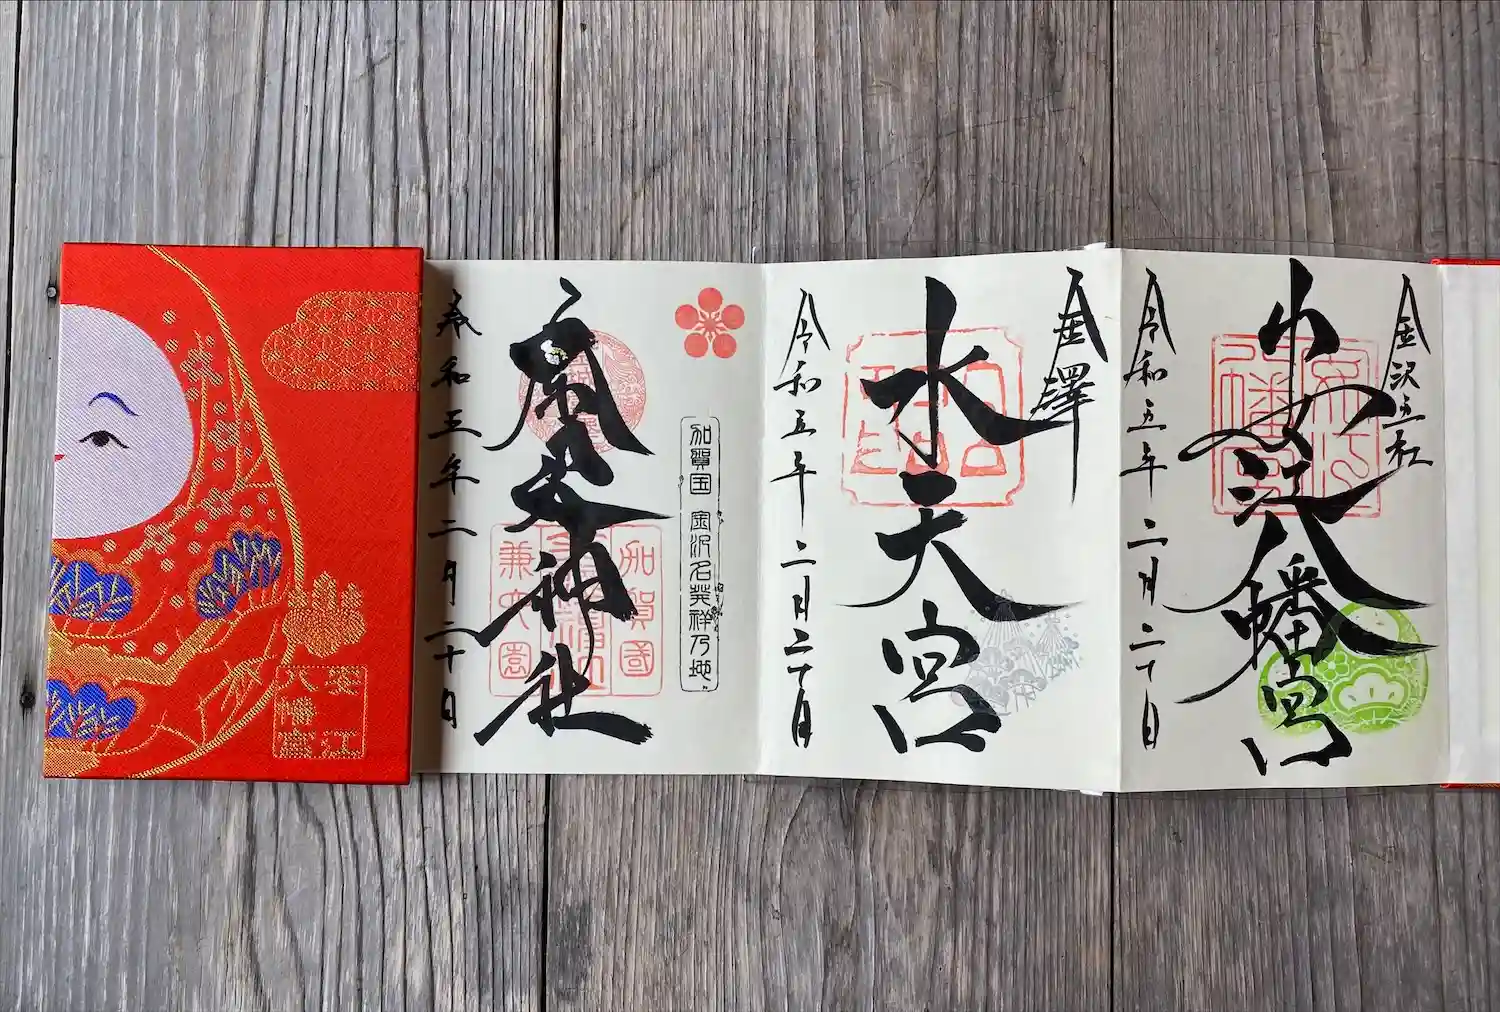 金沢五社
安江八幡宮
令和五年 二月二十日
安江
八幡宮
金澤
水天宮
令和五年 二月二十日
加賀国 金沢名発祥乃地
金澤神社
加賀國
兼六園
令和五年 二月二十日
安江
八幡宮